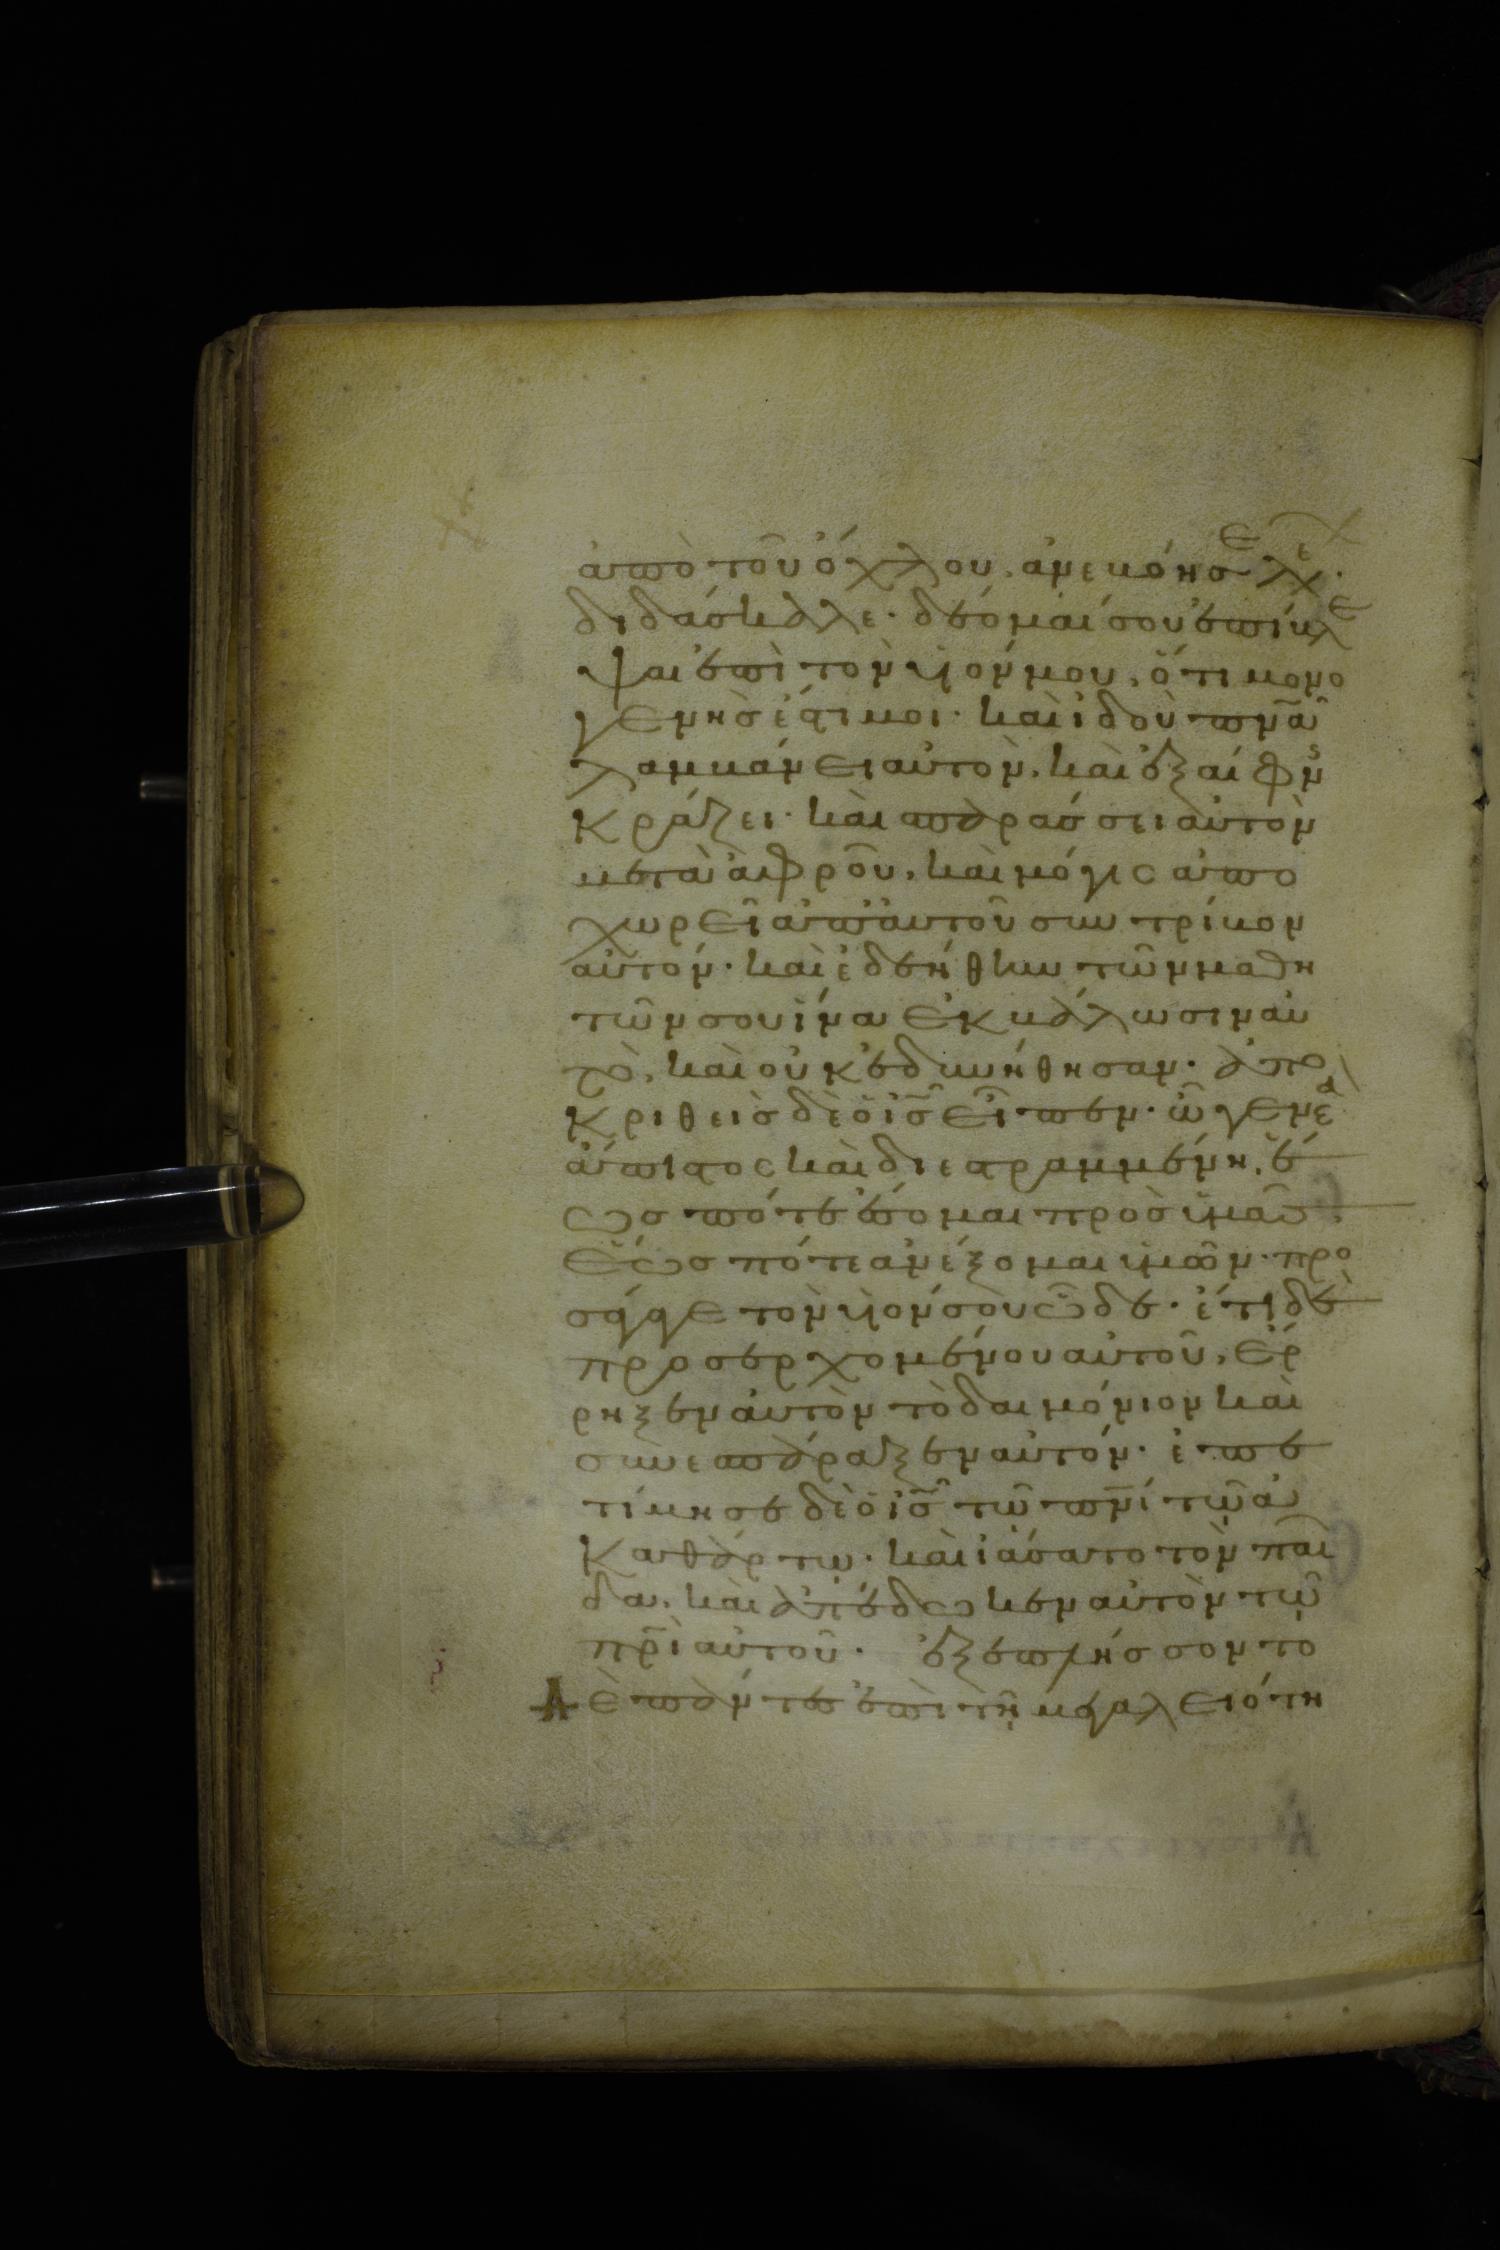 ἀπὸ τοῦ ὄχλου. ἀνεβόησε λέγ·
διδάσκαλε· δέομαί σου ἐπίβλε
ψαι ἐπὶ τὸν υἱόν μου, ὅτι μονο
γενὴσ ἐστι μοι· καὶ ἰδοὺ πνᾶ
λαμβάνει αὐτὸν, καὶ ἐξαίφνς
κράζει· καὶ σπαράσσει αὐτὸν
μετὰ ἀφροῦ, καὶ μόγις ἀπο
χωρεῖ ἀπ' αὐτοῦ συντρίβον
αὐτόν· καὶ ἐδεήθην τῶν μαθη
τῶν σου ἵνα ἐκβάλωσιν αὐ
τὸ, καὶ οὐκ ἐδυνήθησαν· ἀπο
κριθεὶσ δὲ ὁ ἰσ̅ εἶπεν· ὦ γενεὰ
ἄπιστος καὶ διεστραμμένη, ἕ
ωσ πότε ἔσομαι πρὸσ ὑμᾶσ,
ἕωσ πότε ἀνέξομαι ὑμῶν· προ
σάγαγε τὸν υἱόν σου ὧδε· ἔτι δὲ
προσερχομένου αὐτοῦ, ἔρ
ρηξεν αὐτὸν τὸ δαιμόνιον καὶ
συνεσπάραξεν αὐτόν· ἐπε
τίμησε δὲ ὁ ἰσ̅ τῶ πνι̅ τῶ ἀ
καθάρτω· καὶ ἰάσατο τὸν παῖ
δα, καὶ ἀπέδωκεν αὐτὸν τῶ
πρι̅ αὐτοῦ· ἐξεπλήσσοντο
δὲ πάντεσ ἐπὶ τῆ μεγαλειότη